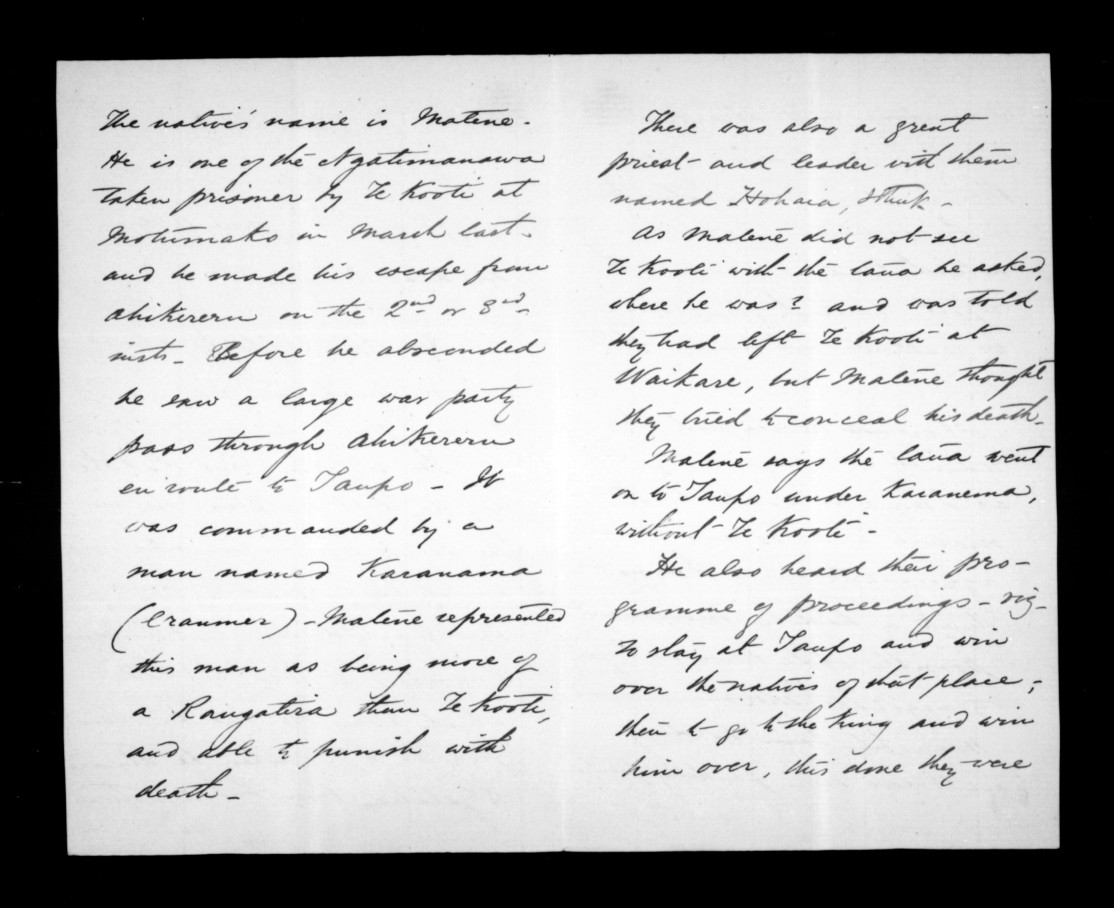 The native's name is Matene.
He is one of the Ngatimanawa
taken prisoner by Te Kooti at
Motumako in March last.
and he made his escape from
Ahikereru on the 2nd or 3rd
insts. Before he absconded
he saw a large war party
pass through Ahikereru
en route to Taupo - It
was commanded by a
man named Karanama
(Cranmer) - Matene represented
this man as being more of
a Rangatira than Te Kooti,
and able to punish with
death -
There was also a great
priest and leader with them
named Hohaia, I think -
As Matene did not see
Te Kooti with the taua he asked,
where he was? and was told
they had left Te Kooti at
Waikare, but Matene thought
they tried to conceal his death.
Matene says the taua went
on to Taupo under Karanema,
without Te Kooti -
He also heard their pro-
gramme of proceedings - viz -
to stay at Taupo and win
over the natives of that place;
then to go to the King and win
him over, this done they were